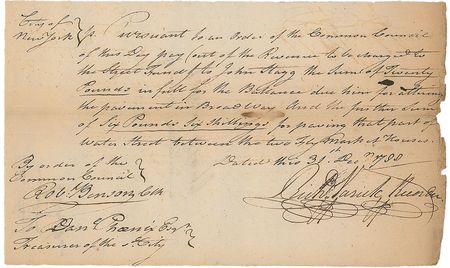 City of
New York } ss. Pursuant to an Order of the Common Council
of this Day pay (out of the Revenue to be charged to
the Street Fund) to John Stagg the Sum of Twenty
Pounds in full for the Ballance due him for altering
the pavement in Broad Way And the further Sum
of Six Pounds Six Shillings for paving that part of
Water Street between the two Fly Market Houses.
Dated this 31st Decr 1788
By order of the
Common Council }
Rob: Benson Clk
Richd Varick, Recorder
To Danl Phoenix Esqr
Treasurer of the sd City